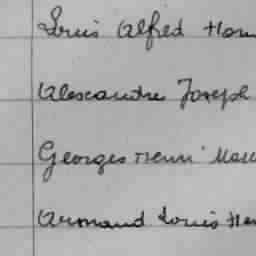 Louis Alfred Hen
Alexandre Joseph
Georges Henri Mau
Armand Louis Hen